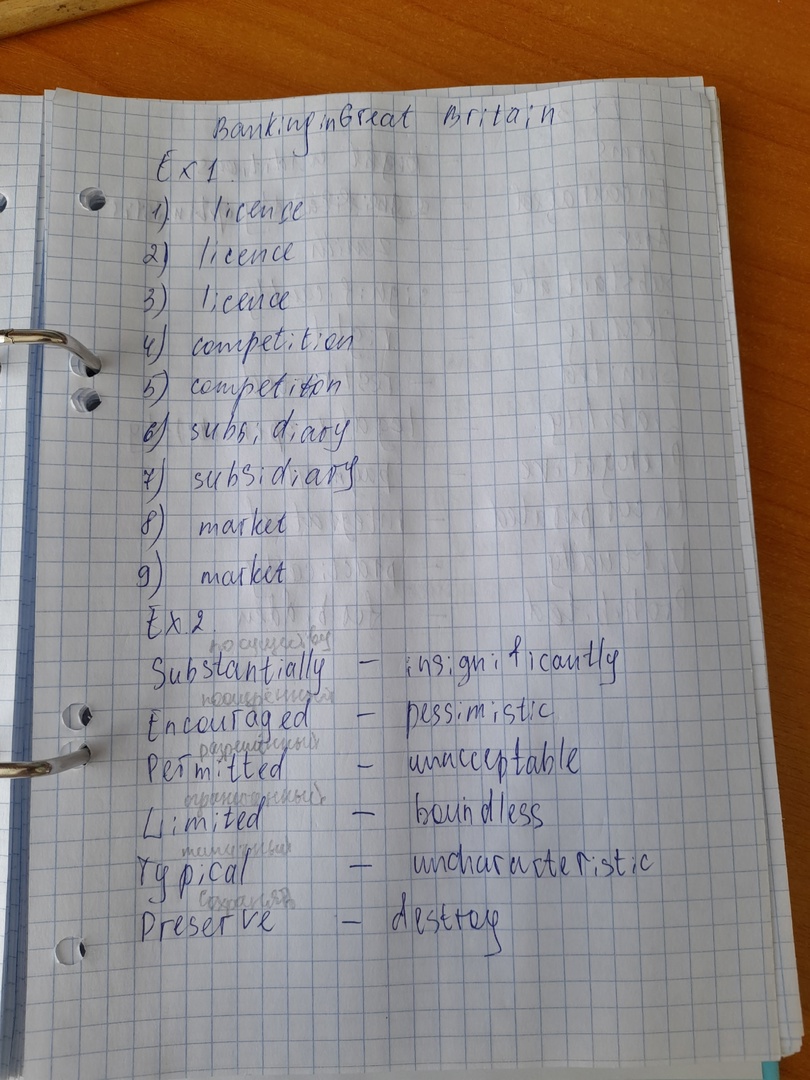 Banking in Great Britain
Ex 1.
1) licence
2) licence
3) licence
4) competition
5) competiton
6) subsidiary
7) subsidiary
8) market
9) market
Ex 2.
по существу
Substantially - insignificantly
поощренный
Encouraged - pessimistic
разрешенный
Permitted - unacceptable
ограниченный
Limited - boundless
типичный
Typical - uncharacteristic
Preserve - destroy